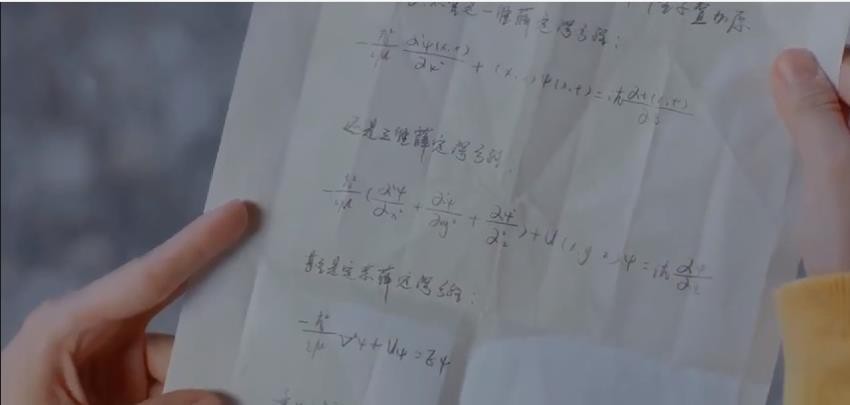 是一维薛定谔方程：
-ℏ²/2μ ∂²ψ(x,t)/∂x² + U(x,t)ψ(x,t)=iℏ ∂ψ(x,t)/∂t
还是三维薛定谔方程，
-ℏ²/2μ (∂²ψ/∂x² + ∂²ψ/∂y² + ∂²ψ/∂z²)+U(x,y,z)ψ=iℏ ∂ψ/∂t
甚至是定态薛定谔方程：
-ℏ²/2μ ∇²ψ+Uψ=Eψ